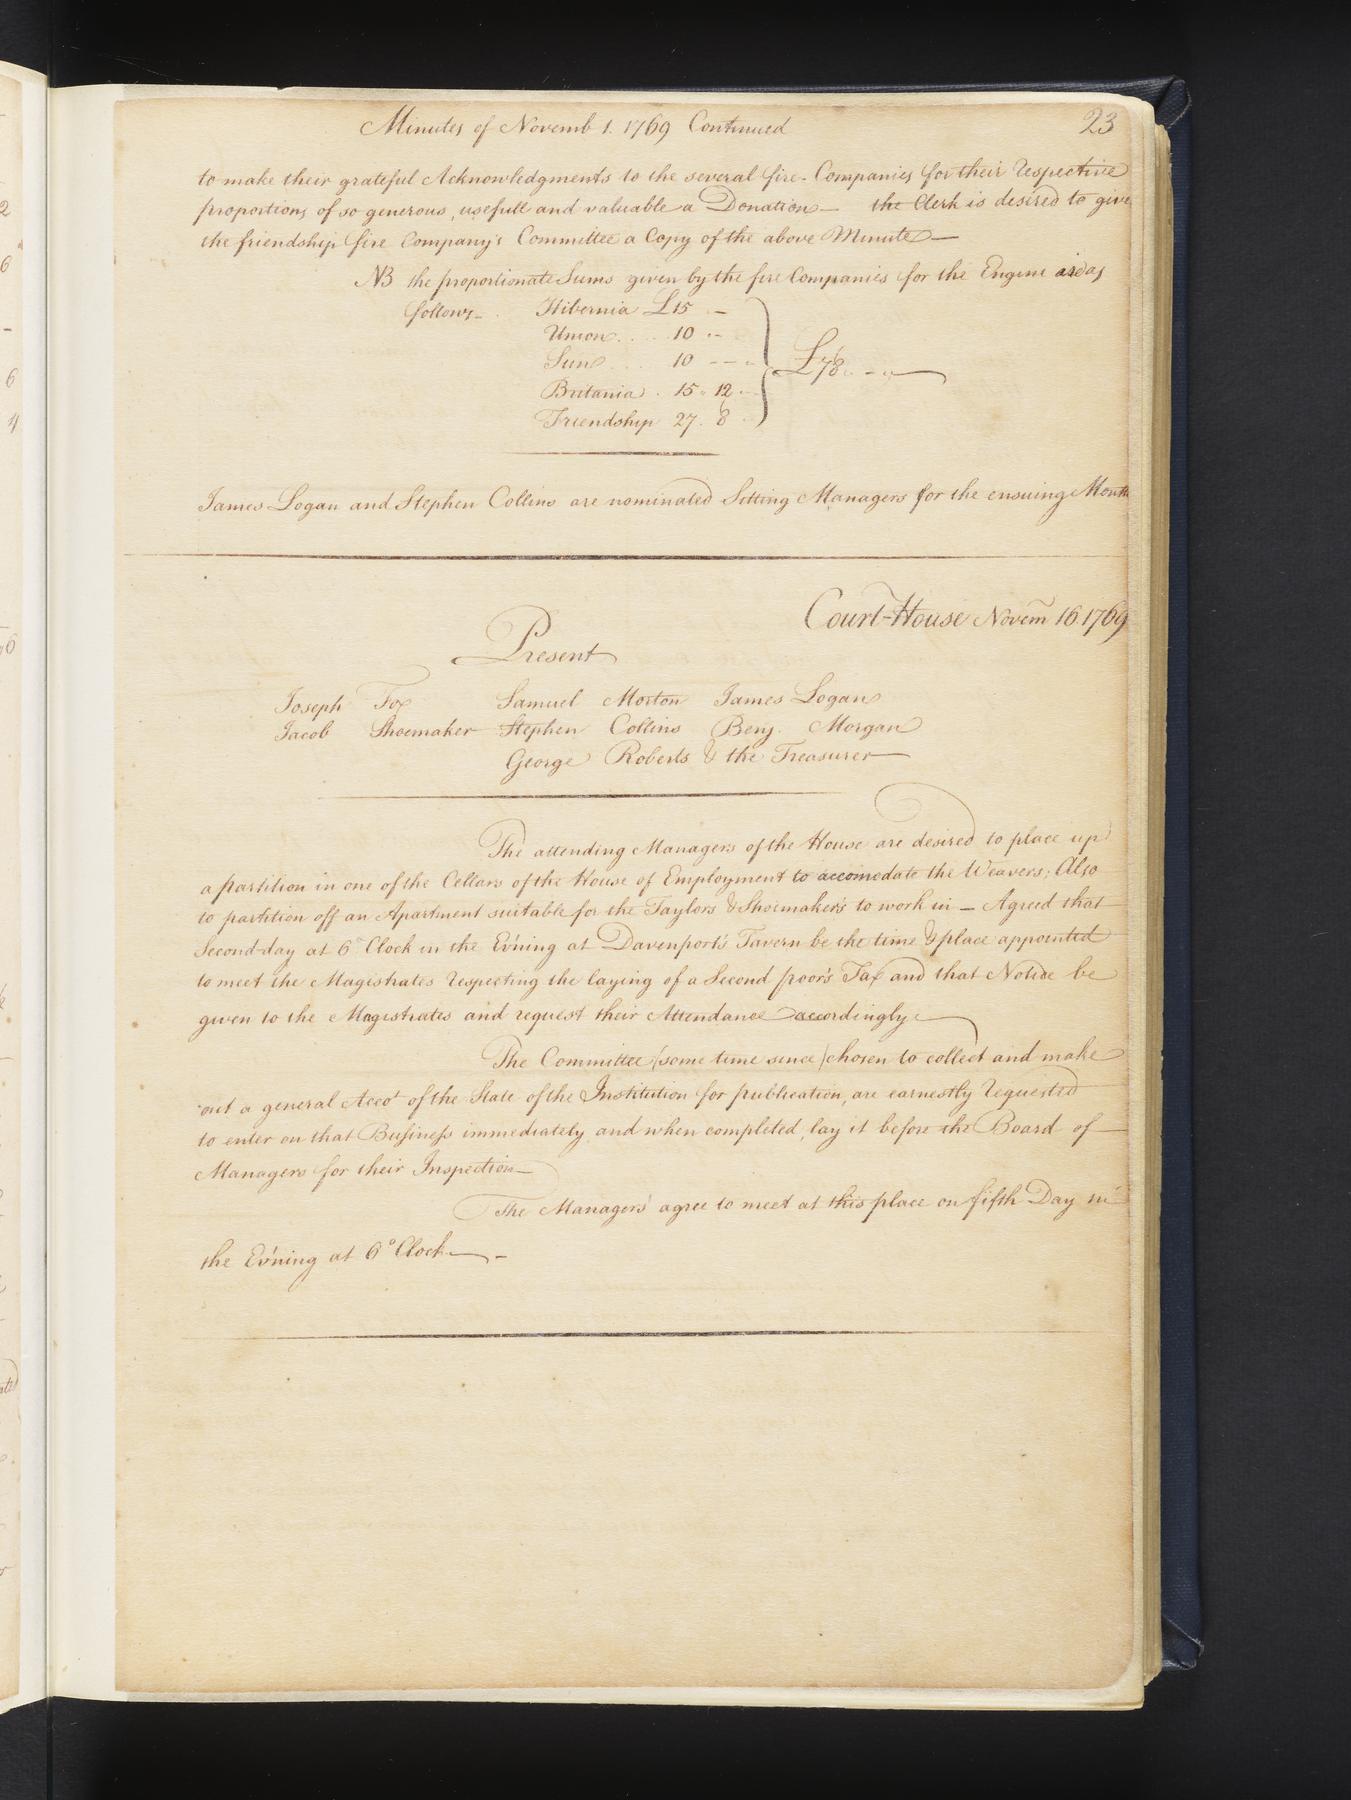 Minutes of Novemb 1. 1769 Continued
23
to make their grateful Acknowledgments to the several fire-Companies for their Respective
proportions of so generous, usefull and valuable a Donation — the Clerk is desired to give
the friendship fire Company's Committee a Copy of the above Minute —
NB the proportionate Sums given by the fire Companies for the Engine are as
follows - Hibernia £15 . -
Union . . 10 . -
Sun . . 10 - - -
Britania . 15 . 12 . -
£78 . - . -
Friendship 27 . 8 . -
James Logan and Stephen Collins are nominated Sitting Managers for the ensuing Month
Court-House Novem 16. 1769
Present
Joseph Fox Samuel Morton James Logan
Jacob Shoemaker Stephen Collins Benj. Morgan
George Roberts & the Treasurer
The attending Managers of the House are desired to place up
a partition in one of the Cellars of the House of Employment to accomedate the Weavers; Also
to partition off an Apartment suitable for the Taylors & Shoemakers to work in — Agreed that
Second-day at 6 ° Clock in the Ev'ning at Davenport's Tavern be the time & place appointed
to meet the Magistrates respecting the laying of a Second poor's Tax and that Notice be
given to the Magistrates and request their Attendance accordingly.
The Committee (some time since) chosen to collect and make
out a general Accot of the State of the Institution for publication, are earnestly requested
to enter on that Business immediately and when completed, lay it before the Board of
Managers for their Inspection —
The Managers agree to meet at this place on fifth Day in
the Ev'ning at 6 ° Clock — -